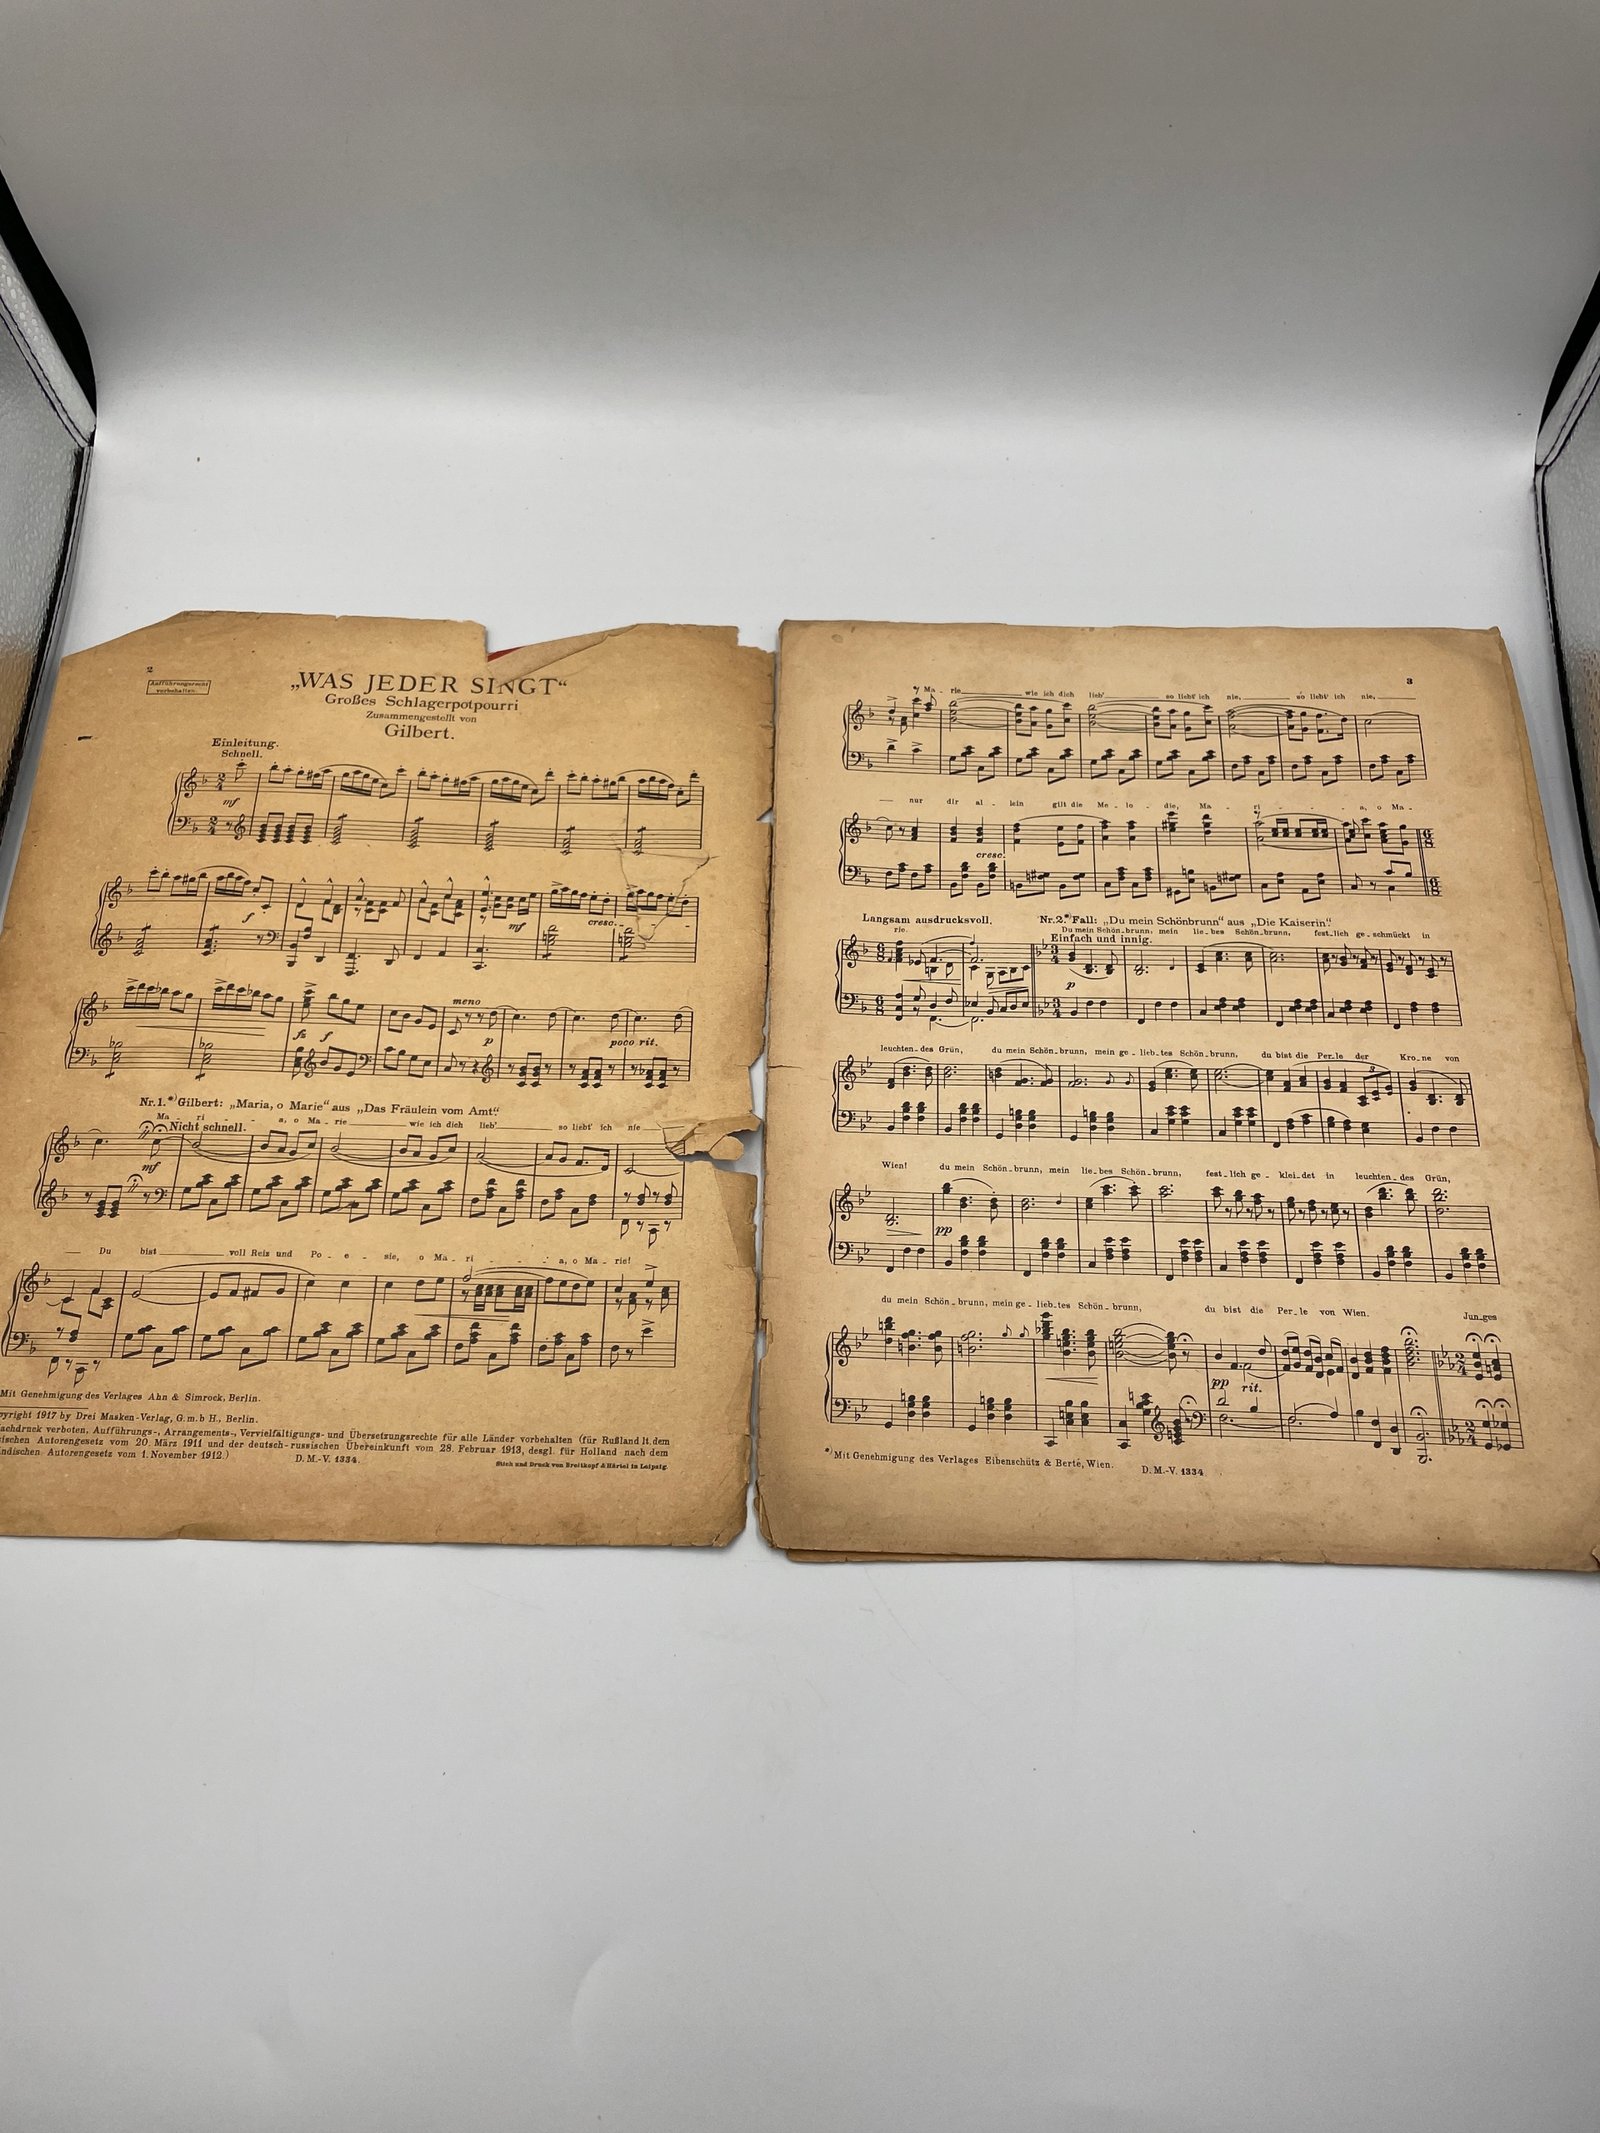 2
Aufführungsrecht
vorbehalten.
„WAS JEDER SINGT“
Großes Schlagerpotpourri
Zusammengestellt von
Gilbert.
Einleitung.
Schnell.
mf
f
mf
cresc.
fz
f
meno
p
poco rit.
Nr. 1.*) Gilbert: „Maria, o Marie“ aus „Das Fräulein vom Amt“
Ma - ri - a, o Ma - rie wie ich dich lieb' so liebt' ich nie
Nicht schnell.
mf
Du bist voll Reiz und Po - e - sie, o Ma - ri - a, o Ma - rie!
Mit Genehmigung des Verlages Ahn & Simrock, Berlin.
pyright 1917 by Drei Masken-Verlag, G.m.b H., Berlin.
achdruck verboten, Aufführungs-, Arrangements-, Vervielfältigungs- und Übersetzungsrechte für alle Länder vorbehalten (für Rußland lt. dem
ischen Autorengesetz vom 20. März 1911 und der deutsch-russischen Übereinkunft vom 28. Februar 1913, desgl. für Holland nach dem
ndischen Autorengesetz vom 1. November 1912.)
D. M.-V. 1334.
Stich und Druck von Breitkopf & Härtel in Leipzig.
3
Ma - rie wie ich dich lieb' so liebt' ich nie, so liebt' ich nie,
nur dir al - lein gilt die Me - lo - die, Ma - ri - a, o Ma -
cresc.
Langsam ausdrucksvoll.
Nr. 2.* Fall: „Du mein Schönbrunn“ aus „Die Kaiserin“.
rie.
Du mein Schön - brunn, mein lie - bes Schön - brunn, fest - lich ge - schmückt in
Einfach und innig.
p
leuchten - des Grün, du mein Schön - brunn, mein ge - lieb - tes Schön - brunn, du bist die Per - le der Kro - ne von
Wien! du mein Schön - brunn, mein lie - bes Schön - brunn, fest - lich ge - klei - det in leuchten - des Grün,
pp
du mein Schön - brunn, mein ge - lieb - tes Schön - brunn, du bist die Per - le von Wien. Jun - ges
pp rit.
*) Mit Genehmigung des Verlages Eibenschütz & Berté, Wien.
D. M.-V. 1334